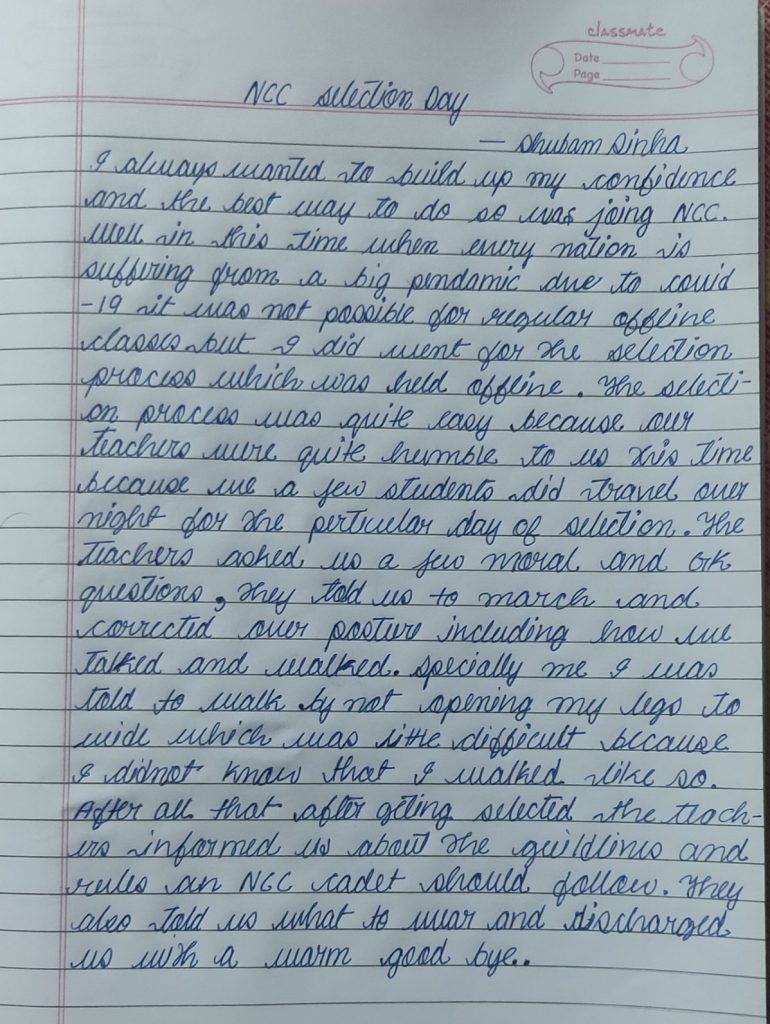 classmate
Date
Page
NCC Selection Day
— Shubam Sinha
I always wanted to build up my confidence
and the best way to do so was joing NCC.
Well in this time when every nation is
suffering from a big pendamic due to covid
-19 it was not possible for regular offline
classes but I did went for the selection
process which was held offline. The selecti-
on process was quite easy because our
teachers were quite humble to us this time
because we a few students did travel over
night for the perticular day of selection. The
teachers asked us a few moral and GK
questions, they told us to march and
corrected our posture including how we
talked and walked. Specially me I was
told to walk by not opening my legs to
wide which was little difficult because
I didnot know that I walked like so.
After all that after geting selected the teach-
ers informed us about the guildlines and
rules an NCC cadet should follow. They
also told us what to wear and discharged
us with a warm good bye..